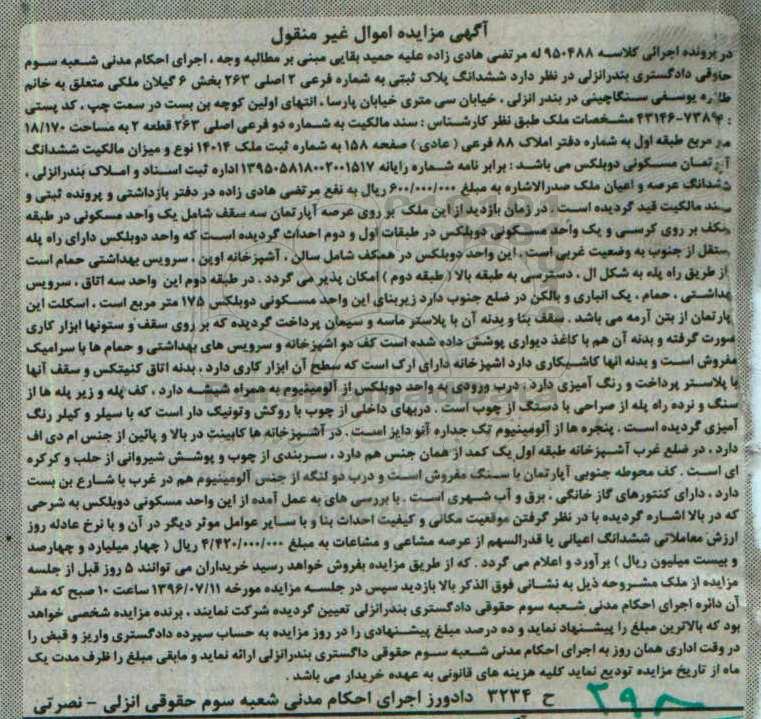 آگهی مزایده اموال غیر منقول
در پرونده اجرائی کلاسه ۹۵۰۴۸۸ له مرتضی هادی زاده علیه حمید بقایی مبنی بر مطالبه وجه ، اجرای احکام مدنی شعبه سوم
حقوقی دادگستری بندرانزلی در نظر دارد ششدانگ پلاک ثبتی به شماره فرعی ۲ اصلی ۲۶۳ بخش ۶ گیلان ملکی متعلق به خانم
یوسفی سنگاچینی در بندر انزلی ، خیابان سی متری خیابان پارسا ، انتهای اولین کوچه بن بست در سمت چپ ، کد پستی
۴۳۱۴۶-۷۳۸۹۴ : مشخصات ملک طبق نظر کارشناس : سند مالکیت به شماره دو فرعی اصلی ۲۶۳ قطعه ۲ به مساحت ۱۸/۱۷۰
متر مربع طبقه اول به شماره دفتر املاک ۸۸ فرعی ( عادی ) صفحه ۱۵۸ به شماره ثبت ملک ۱۴۰۱۴ نوع و میزان مالکیت ششدانگ
آپارتمان مسکونی دوبلکس می باشد : برابر نامه شماره رایانه ۱۳۹۵۰۵۸۱۸۰۰۲۰۰۱۵۱۷ اداره ثبت اسناد و املاک بندرانزلی ،
ششدانگ عرصه و اعیان ملک صدرالاشاره به مبلغ ۶۰۰/۰۰۰/۰۰۰ ریال به نفع مرتضی هادی زاده در دفتر بازداشتی و پرونده ثبتی و
سند مالکیت قید گردیده است . در زمان بازدید از این ملک بر روی عرصه آپارتمان سه سقف شامل یک واحد مسکونی در طبقه
همکف بر روی کرسی و یک واحد مسکونی دوبلکس در طبقات اول و دوم احداث گردیده است که واحد دوبلکس دارای راه پله
مستقل از جنوب به وضعیت غربی است . این واحد دوبلکس در همکف شامل سالن ، آشپزخانه اوپن ، سرویس بهداشتی حمام است
از طریق راه پله به شکل ال ، دسترسی به طبقه بالا ( طبقه دوم ) امکان پذیر می گردد . در طبقه دوم این واحد سه اتاق ، سرویس
بهداشتی ، حمام ، یک انباری و بالکن در ضلع جنوب دارد زیربنای این واحد مسکونی دوبلکس ۱۷۵ متر مربع است . اسکلت این
آپارتمان از بتن آرمه می باشد . سقف بنا و بدنه آن با پلاستر ماسه و سیمان پرداخت گردیده که بر روی سقف و ستونها ابزار کاری
صورت گرفته و بدنه آن هم با کاغذ دیواری پوشش داده شده است کف دو اشپزخانه و سرویس های بهداشتی و حمام ها با سرامیک
مفروش است و بدنه انها کاشیکاری دارد اشپزخانه دارای ارک است که سطح آن ابزار کاری دارد ، بدنه اتاق کنیتکس و سقف آنها
با پلاستر پرداخت و رنگ آمیزی دارد . درب ورودی به واحد دوبلکس از آلومینیوم به همراه شیشه دارد ، کف پله و زیر پله ها از
سنگ و نرده راه پله از صراحی با دستگ از چوب است . دربهای داخلی از چوب با روکش وتونیک دار است که با سیلر و کیلر رنگ
آمیزی گردیده است . پنجره ها از آلومینیوم تک جداره آنو دایز است . در آشپزخانه ها کابینت در بالا و پائین از جنس ام دی اف
دارد ، در ضلع غرب آشپزخانه طبقه اول یک کمد از همان جنس هم دارد ، سربندی از چوب و پوشش شیروانی از حلب و کرکره
ای است . کف محوطه جنوبی آپارتمان با سنگ مفروش است و درب دو لنگه از جنس آلومینیوم هم در غرب با شارع بن بست
دارد ، دارای کنتورهای گاز خانگی ، برق و آب شهری است . با بررسی های به عمل آمده از این واحد مسکونی دوبلکس به شرحی
که در بالا اشاره گردیده با در نظر گرفتن موقعیت مکانی و کیفیت احداث بنا و با سایر عوامل موثر دیگر در آن و با نرخ عادله روز
ارزش معاملاتی ششدانگ اعیانی یا قدرالسهم از عرصه مشاعی و مشاعات به مبلغ ۴/۴۲۰/۰۰۰/۰۰۰ ریال ( چهار میلیارد و چهارصد
و بیست میلیون ریال ) برآورد و اعلام می گردد . که از طریق مزایده بفروش خواهد رسید خریداران می توانند ۵ روز قبل از جلسه
مزایده از ملک مشروحه ذیل به نشانی فوق الذکر بالا بازدید سپس در جلسه مزایده مورخه ۱۳۹۶/۰۷/۱۱ ساعت ۱۰ صبح که مقر
آن دائره اجرای احکام مدنی شعبه سوم حقوقی دادگستری بندرانزلی تعیین گردیده شرکت نمایند ، برنده مزایده شخصی خواهد
بود که بالاترین مبلغ را پیشنهاد نماید و ده درصد مبلغ پیشنهادی را در روز مزایده به حساب سپرده دادگستری واریز و قبض را
در وقت اداری همان روز به اجرای احکام مدنی شعبه سوم حقوقی داگستری بندرانزلی ارائه نماید و مابقی مبلغ را ظرف مدت یک
ماه از تاریخ مزایده تودیع نماید کلیه هزینه های قانونی به عهده خریدار می باشد .
ح ۳۲۳۴ دادورز اجرای احکام مدنی شعبه سوم حقوقی انزلی - نصرتی